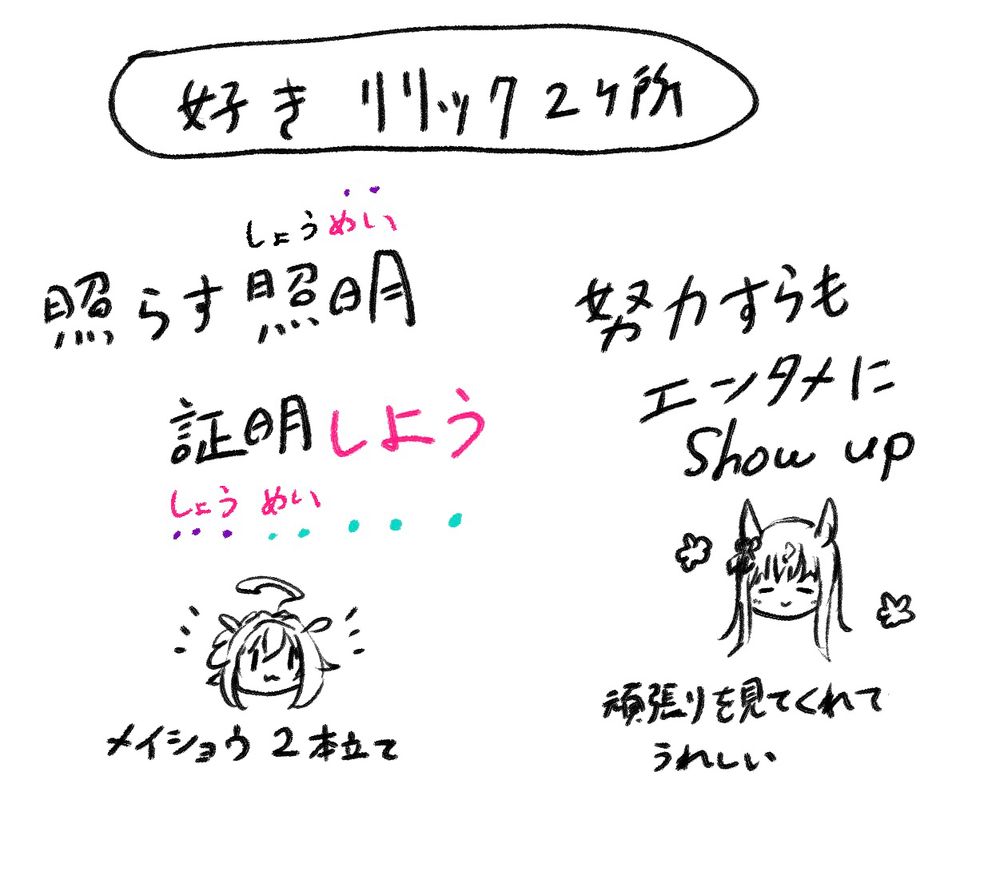 好きリリック2ケ所
しょうめい
照らす照明
証明しよう
しょうめい
メイショウ2本立て
努力すらも
エンタメに
Show up
頑張りを見てくれて
うれしい